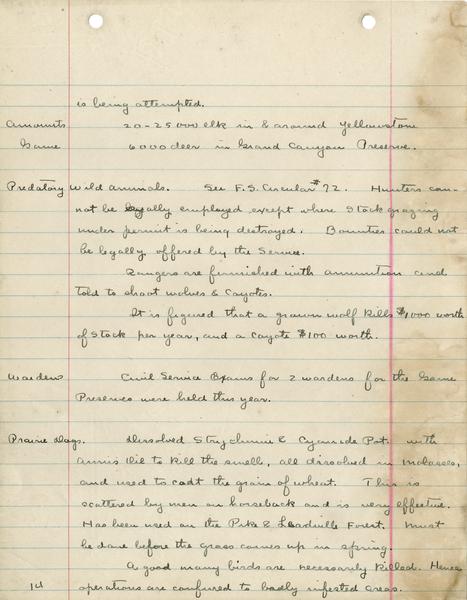 is being attempted.
Amounts 20-25000 elk in & around Yellowstone
Game 6000 deer in Grand Canyon Preserve.
Predatory Wild animals. See F.S. Circular #72. Hunters can-
not be legally employed except where Stock grazing
under permit is being destroyed. Bounties could not
be legally offered by the Service.
Rangers are furnished with ammunition and
told to shoot wolves & Coyotes.
It is figured that a grown wolf kills $1000 worth
of Stock per year, and a Coyote $100 worth.
Wardens Civil Service Exams for 2 wardens for the Game
Preserves were held this year.
Prairie Dogs. Dissolved Strychnine & Cyanide Pot. with
Annis Oil to kill the smell, all dissolved in molasses,
and used to coat the grain of wheat. This is
scattered by men on horseback and is very effective.
Has been used on the Pike & Leadville Forest. Must
be done before the grass comes up in spring.
A good many birds are necessarily killed. Hence
14 operations are confined to badly infested areas.